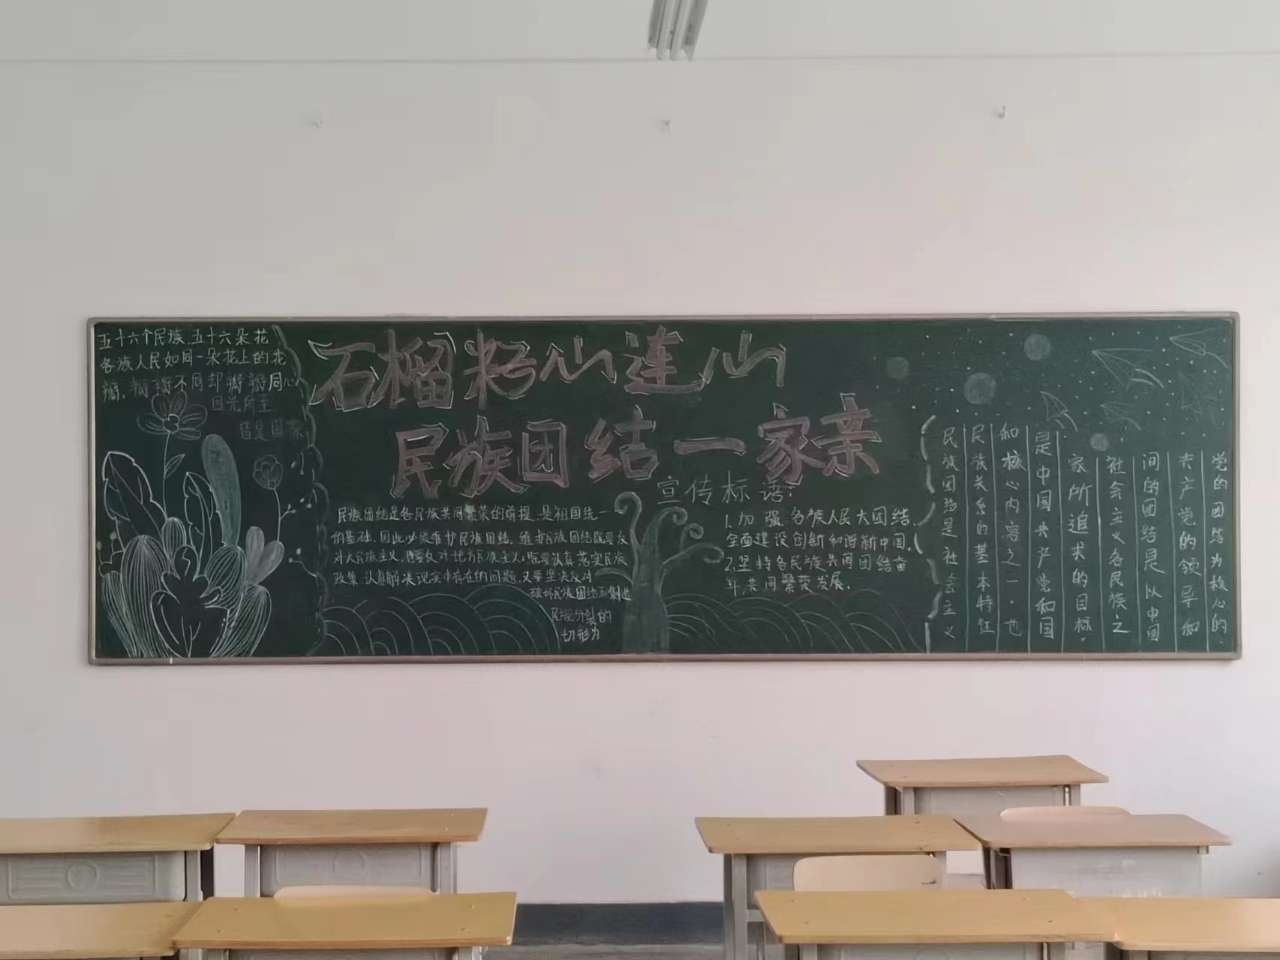 五十六个民族,五十六朵花
各族人民如同一朵花上的花
瓣,瓣瓣不同却瓣瓣同心
石榴籽心连心
民族团结一家亲
民族团结是各民族共同繁荣的前提,是祖国统一
的基础,因此必须维护民族团结,维护民族团结既要反
对大民族主义,也要反对地方民族主义,既要认真落实民族
政策,认真解决现实中存在的问题,又要坚决反对
破坏民族团结和制造
民族分裂的
切行为
宣传标语:
1.加强各族人民大团结,
全面建设创新和谐新中国,
2.坚持各民族共同团结奋
斗,共同繁荣发展.
民族团结是社会主义
民族关系的基本特征
和核心内容之一.也
是中国共产党和国
家所追求的目标.
社会主义各民族之
间的团结是以中国
共产党的领导和
党的团结为核心的